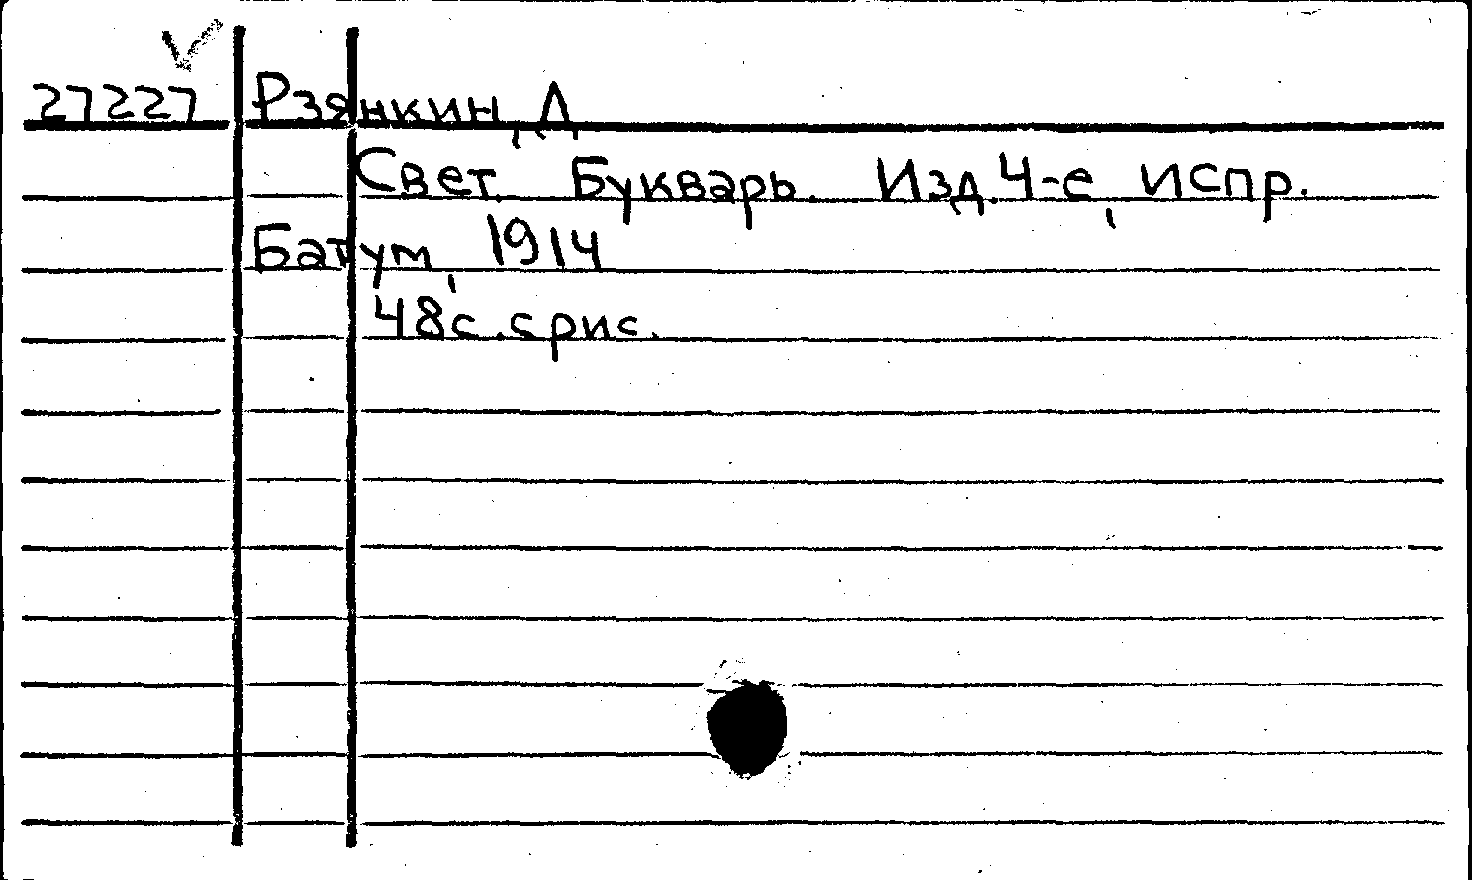 27227 Рзянкин, Д.
Свет. Букварь. Изд. 4-е, испр.
Батум, 1914
48 с. с рис.